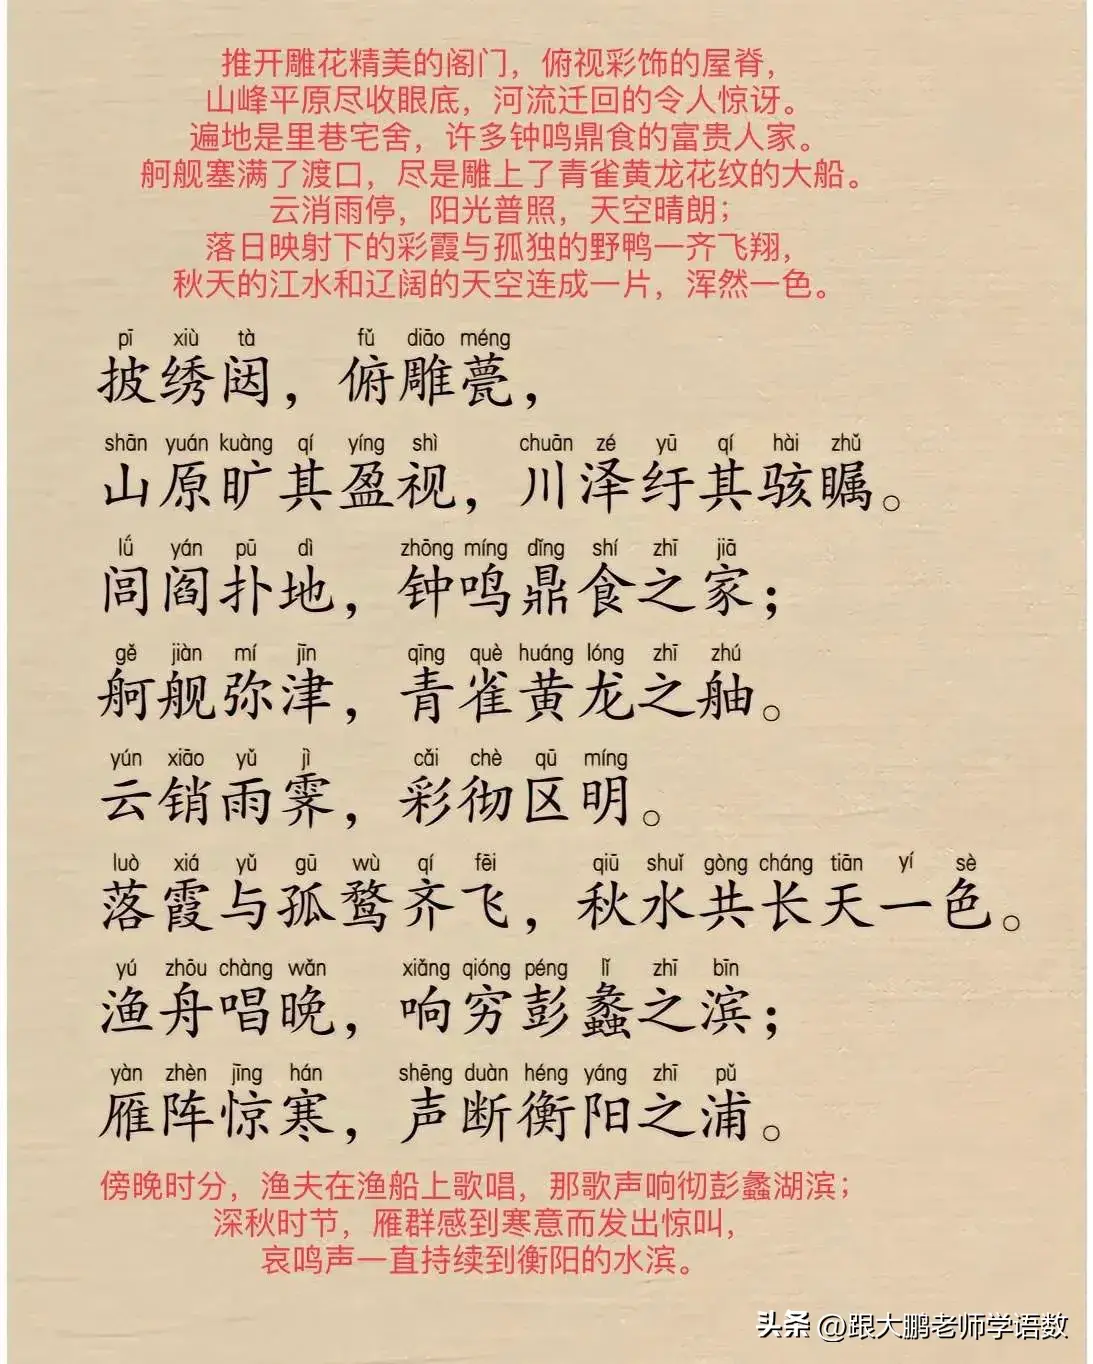 推开雕花精美的阁门，俯视彩饰的屋脊，
山峰平原尽收眼底，河流迂回的令人惊讶。
遍地是里巷宅舍，许多钟鸣鼎食的富贵人家。
舸舰塞满了渡口，尽是雕上了青雀黄龙花纹的大船。
云消雨停，阳光普照，天空晴朗；
落日映射下的彩霞与孤独的野鸭一齐飞翔，
秋天的江水和辽阔的天空连成一片，浑然一色。
pī xiù tà fǔ diāo méng
披绣闼，俯雕甍，
shān yuán kuàng qí yíng shì chuān zé yū qí hài zhǔ
山原旷其盈视，川泽纡其骇瞩。
lǘ yán pū dì zhōng míng dǐng shí zhī jiā
闾阎扑地，钟鸣鼎食之家；
gě jiàn mí jīn qīng què huáng lóng zhī zhú
舸舰弥津，青雀黄龙之舳。
yún xiāo yǔ jì cǎi chè qū míng
云销雨霁，彩彻区明。
luò xiá yǔ gū wù qí fēi qiū shuǐ gòng cháng tiān yí sè
落霞与孤鹜齐飞，秋水共长天一色。
yú zhōu chàng wǎn xiǎng qióng péng lǐ zhī bīn
渔舟唱晚，响穷彭蠡之滨；
yàn zhèn jīng hán shēng duàn héng yáng zhī pǔ
雁阵惊寒，声断衡阳之浦。
傍晚时分，渔夫在渔船上歌唱，那歌声响彻彭蠡湖滨；
深秋时节，雁群感到寒意而发出惊叫，
哀鸣声一直持续到衡阳的水滨。
头条 @跟大鹏老师学语数